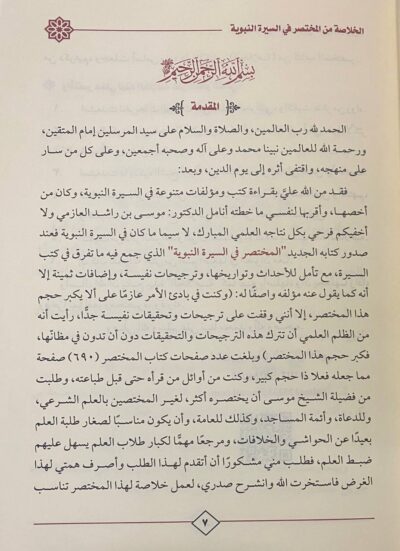 الخلاصة من المختصر في السيرة النبوية
بسم الله الرحمن الرحيم
المقدمة
الحمد لله رب العالمين، والصلاة والسلام على سيد المرسلين إمام المتقين،
ورحمة الله للعالمين نبينا محمد وعلى آله وصحبه أجمعين، وعلى كل من سار
على منهجه، واقتفى أثره إلى يوم الدين، وبعد:
فقد من الله عليَّ بقراءة كتب ومؤلفات متنوعة في السيرة النبوية، وكان من
أخصها، وأقربها لنفسي ما خطته أنامل الدكتور: موسى بن راشد العازمي ولا
أخفيكم فرحي بكل نتاجه العلمي المبارك، لا سيما ما كان في السيرة النبوية فعند
صدور كتابه الجديد "المختصر في السيرة النبوية" الذي جمع فيه ما تفرق في كتب
السيرة، مع تأمل للأحداث وتواريخها، وترجيحات نفيسة، وإضافات ثمينة إلا
أنه كما يقول عنه مؤلفه واصفًا له: (وكنت في بادئ الأمر عازمًا على ألا يكبر حجم
هذا المختصر، إلا أنني وقفت على ترجيحات وتحقيقات نفيسة جدًّا، رأيت أنه
من الظلم العلمي أن تترك هذه الترجيحات والتحقيقات دون أن تدون في مظانّها،
فكبر حجم هذا المختصر) وبلغت عدد صفحات كتاب المختصر (٦٩٠) صفحة
مما جعله فعلا ذا حجم كبير، وكنت من أوائل من قرأه حتى قبل طباعته، وطلبت
من فضيلة الشيخ موسى أن يختصره أكثر، لغير المختصين بالعلم الشرعي،
وللدعاة، وأئمة المساجد، وكذلك للعامة، وأن يكون مناسبًا لصغار طلبة العلم
بعيدًا عن الحواشي والخلافات، ومرجعًا مهمًّا لكبار طلاب العلم يسهل عليهم
ضبط العلم، فطلب مني مشكورًا أن أتقدم لهذا الطلب وأصرف همتي لهذا
الغرض فاستخرت الله وانشرح صدري، لعمل خلاصة لهذا المختصر تناسب
٧